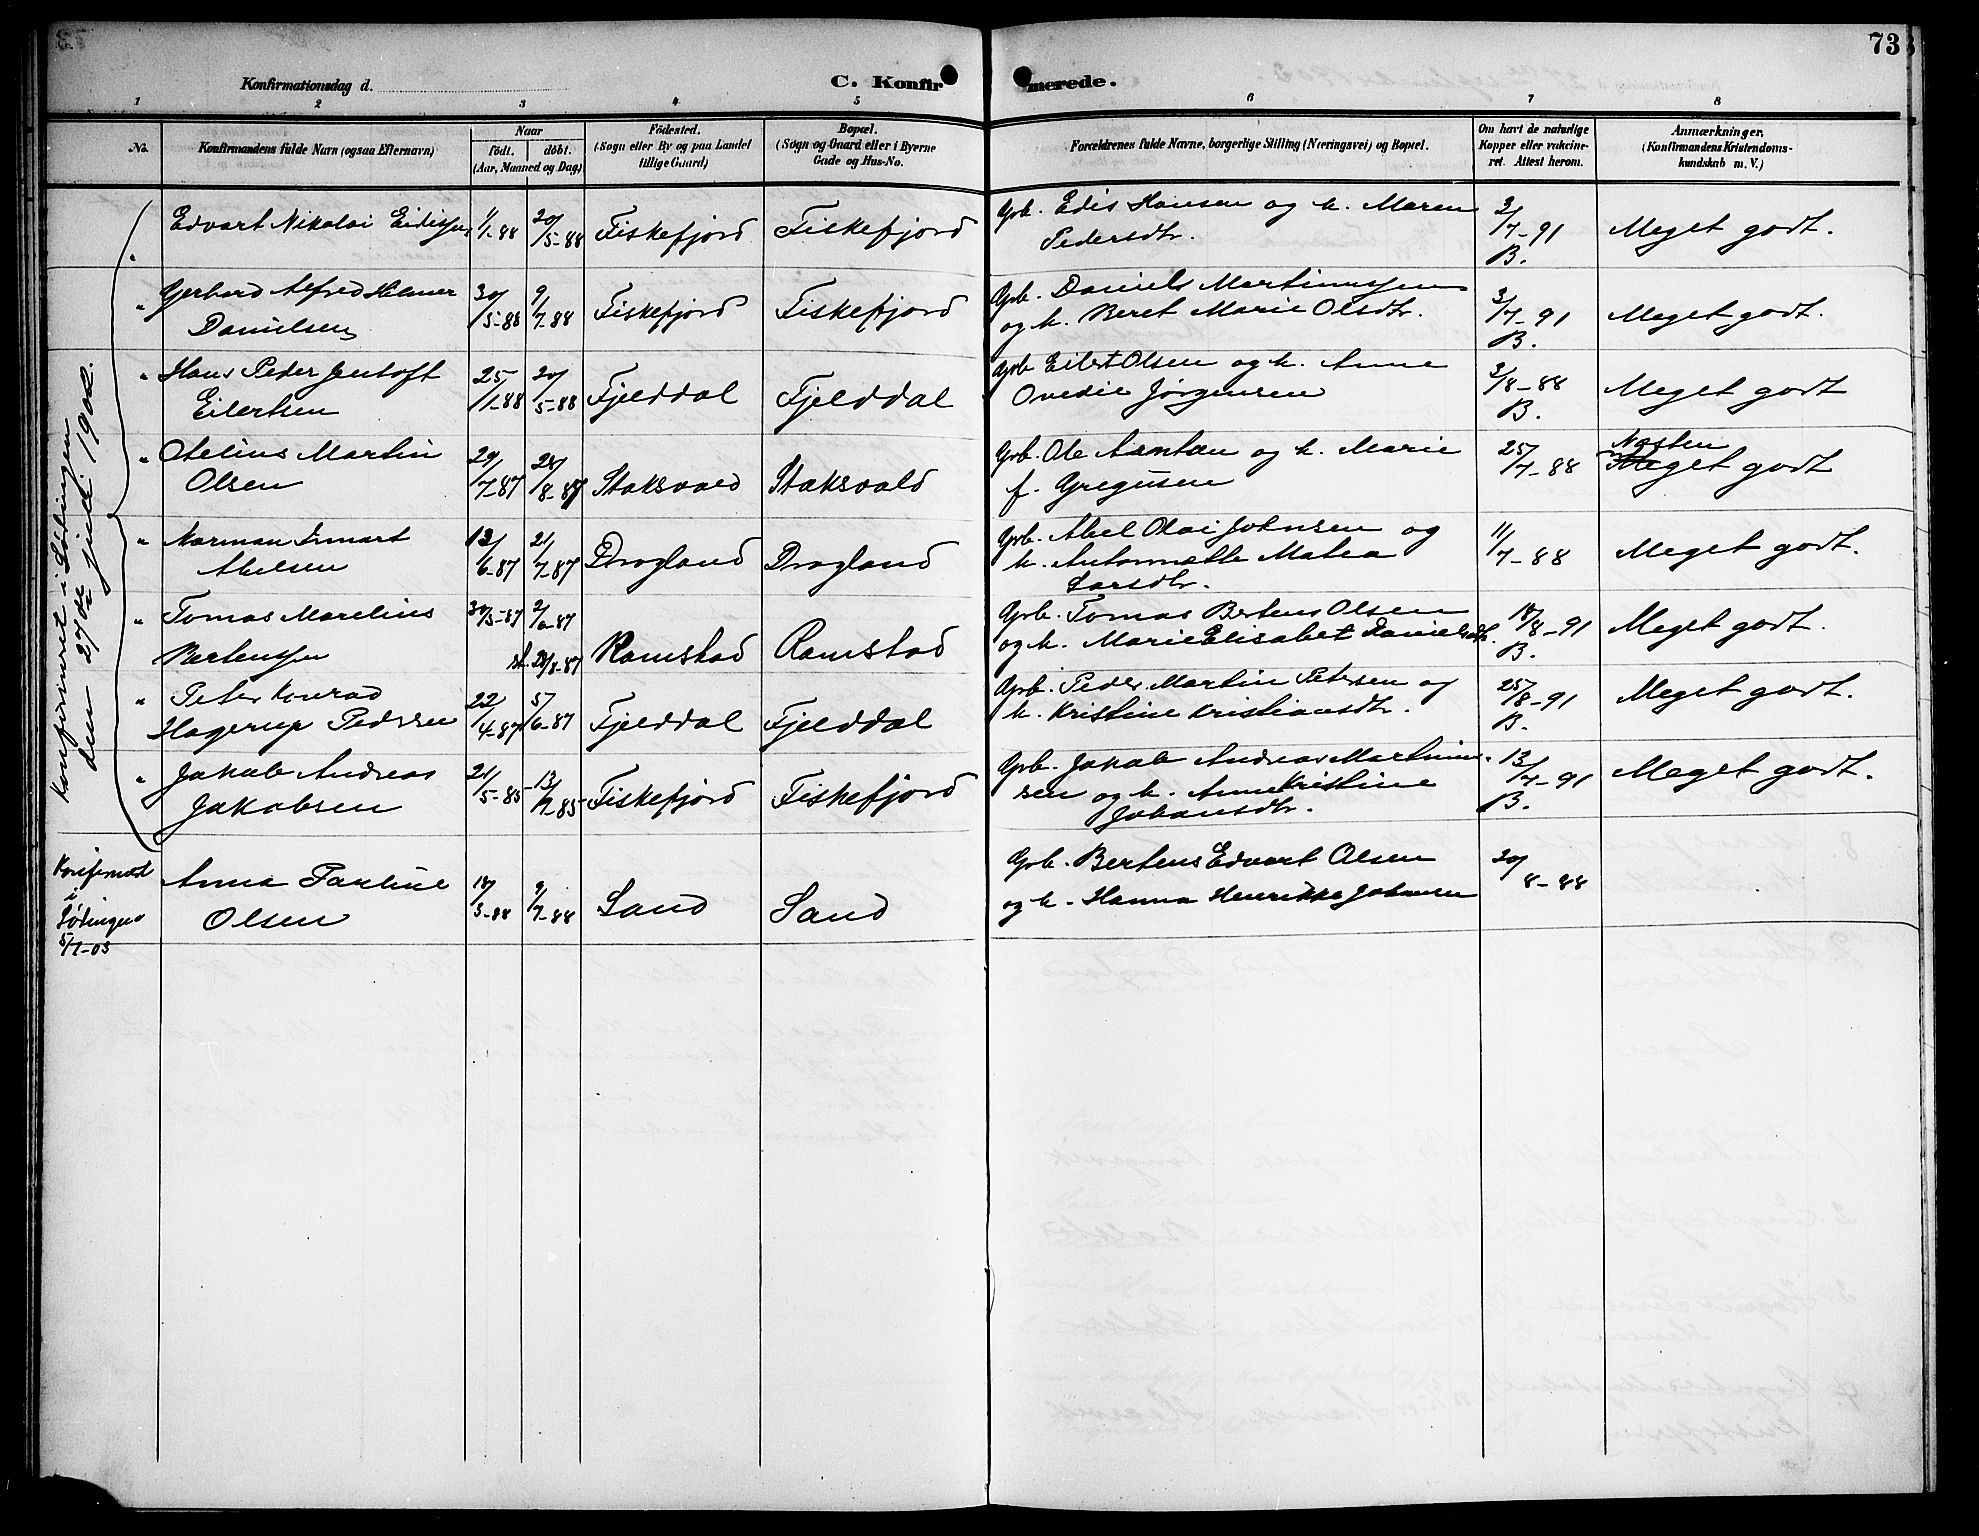 73
Konfirmationsdag d.
C. Konfirmerede.
1 2 3 4 5 6 7 8
No.
Konfirmandens fulde Navn (ogsaa Efternavn)
Naar
födt. döbt.
(Aar, Maaned og Dag)
Födested.
(Sogn eller By og paa Landet
tillige Gaard)
Bopæl.
(Sogn og Gaard eller i Byerne
Gade og Hus-No.
Forældrenes fulde Navne, borgerlige Stilling (Næringsvei) og Bopæl.
Om havt de naturlige
Kopper eller vakcine-
ret. Attest herom.
Anmærkninger.
(Konfirmandens Kristendoms-
kundskab m. V.)
Konfirmeret i Lödingen
den 27de juli 1902.
" Edvart Nikolai 1/1-88 20/5-88 Fiskefjord Fiskefjord Grb. Edis Hansen og h. Maren
Pedersdtr. 3/7-91 B. Meget godt.
" Gerhard Alfred Hilmer
Danielsen 30/5-88 9/7-88 Fiskefjord Fiskefjord Grb. Daniels Martinussen
og h. Beret Marie Olsdtr. 3/7-91 B. Meget godt.
" Hans Peder Jentoft
Eilertsen 25/1-88 20/5-88 Fjelddal Fjelddal Grb Eilert Olsen og h. Anne
Ovedie Jørgensen 3/8-88 B. Meget godt
" Martin
Olsen 29/7-87 28/8-87 Staksvold Staksvold Grb. Ole og h. Marie
f. Gregusen 25/7-88 Næsten
Meget godt
" Norman
Abelsen 13/6-87 21/7-87 Drogland Drogland Grb. Abel Olai Johnsen og
h. Antonnette Matea
Larsdtr. 11/7-88 Meget godt.
" Tomas Marelius
Bertenssen 30/3-87 st. 28/8-87 Ramstad Ramstad Grb. Tomas Bertens Olsen
og h. Marie Elisabet Danielsdtr. 18/8-91 B. Meget godt.
" Peter Konrad
Hagerup Pedersen 22/4-87 5/6-87 Fjelddal Fjelddal Grb. Peder Martin Petersen og
h. Kristine Kristiansdtr. 25/8-91 B. Meget godt.
" Jakob Andreas
Jakobsen 21/5-85 Fiskefjord Fiskefjord Grb. Jakob Andreas Martinus-
sen og h. Anne Kristine
Johansdtr. 13/7-91 B. Meget godt.
Konfirmeret
i
Lödingen
5/7-03
Anna Parline
Olsen 18/5-88 9/7-88 Sand Sand Grb. Bertens Edvart Olsen
og h. Hanna Henrikke Johansen 30/8-88